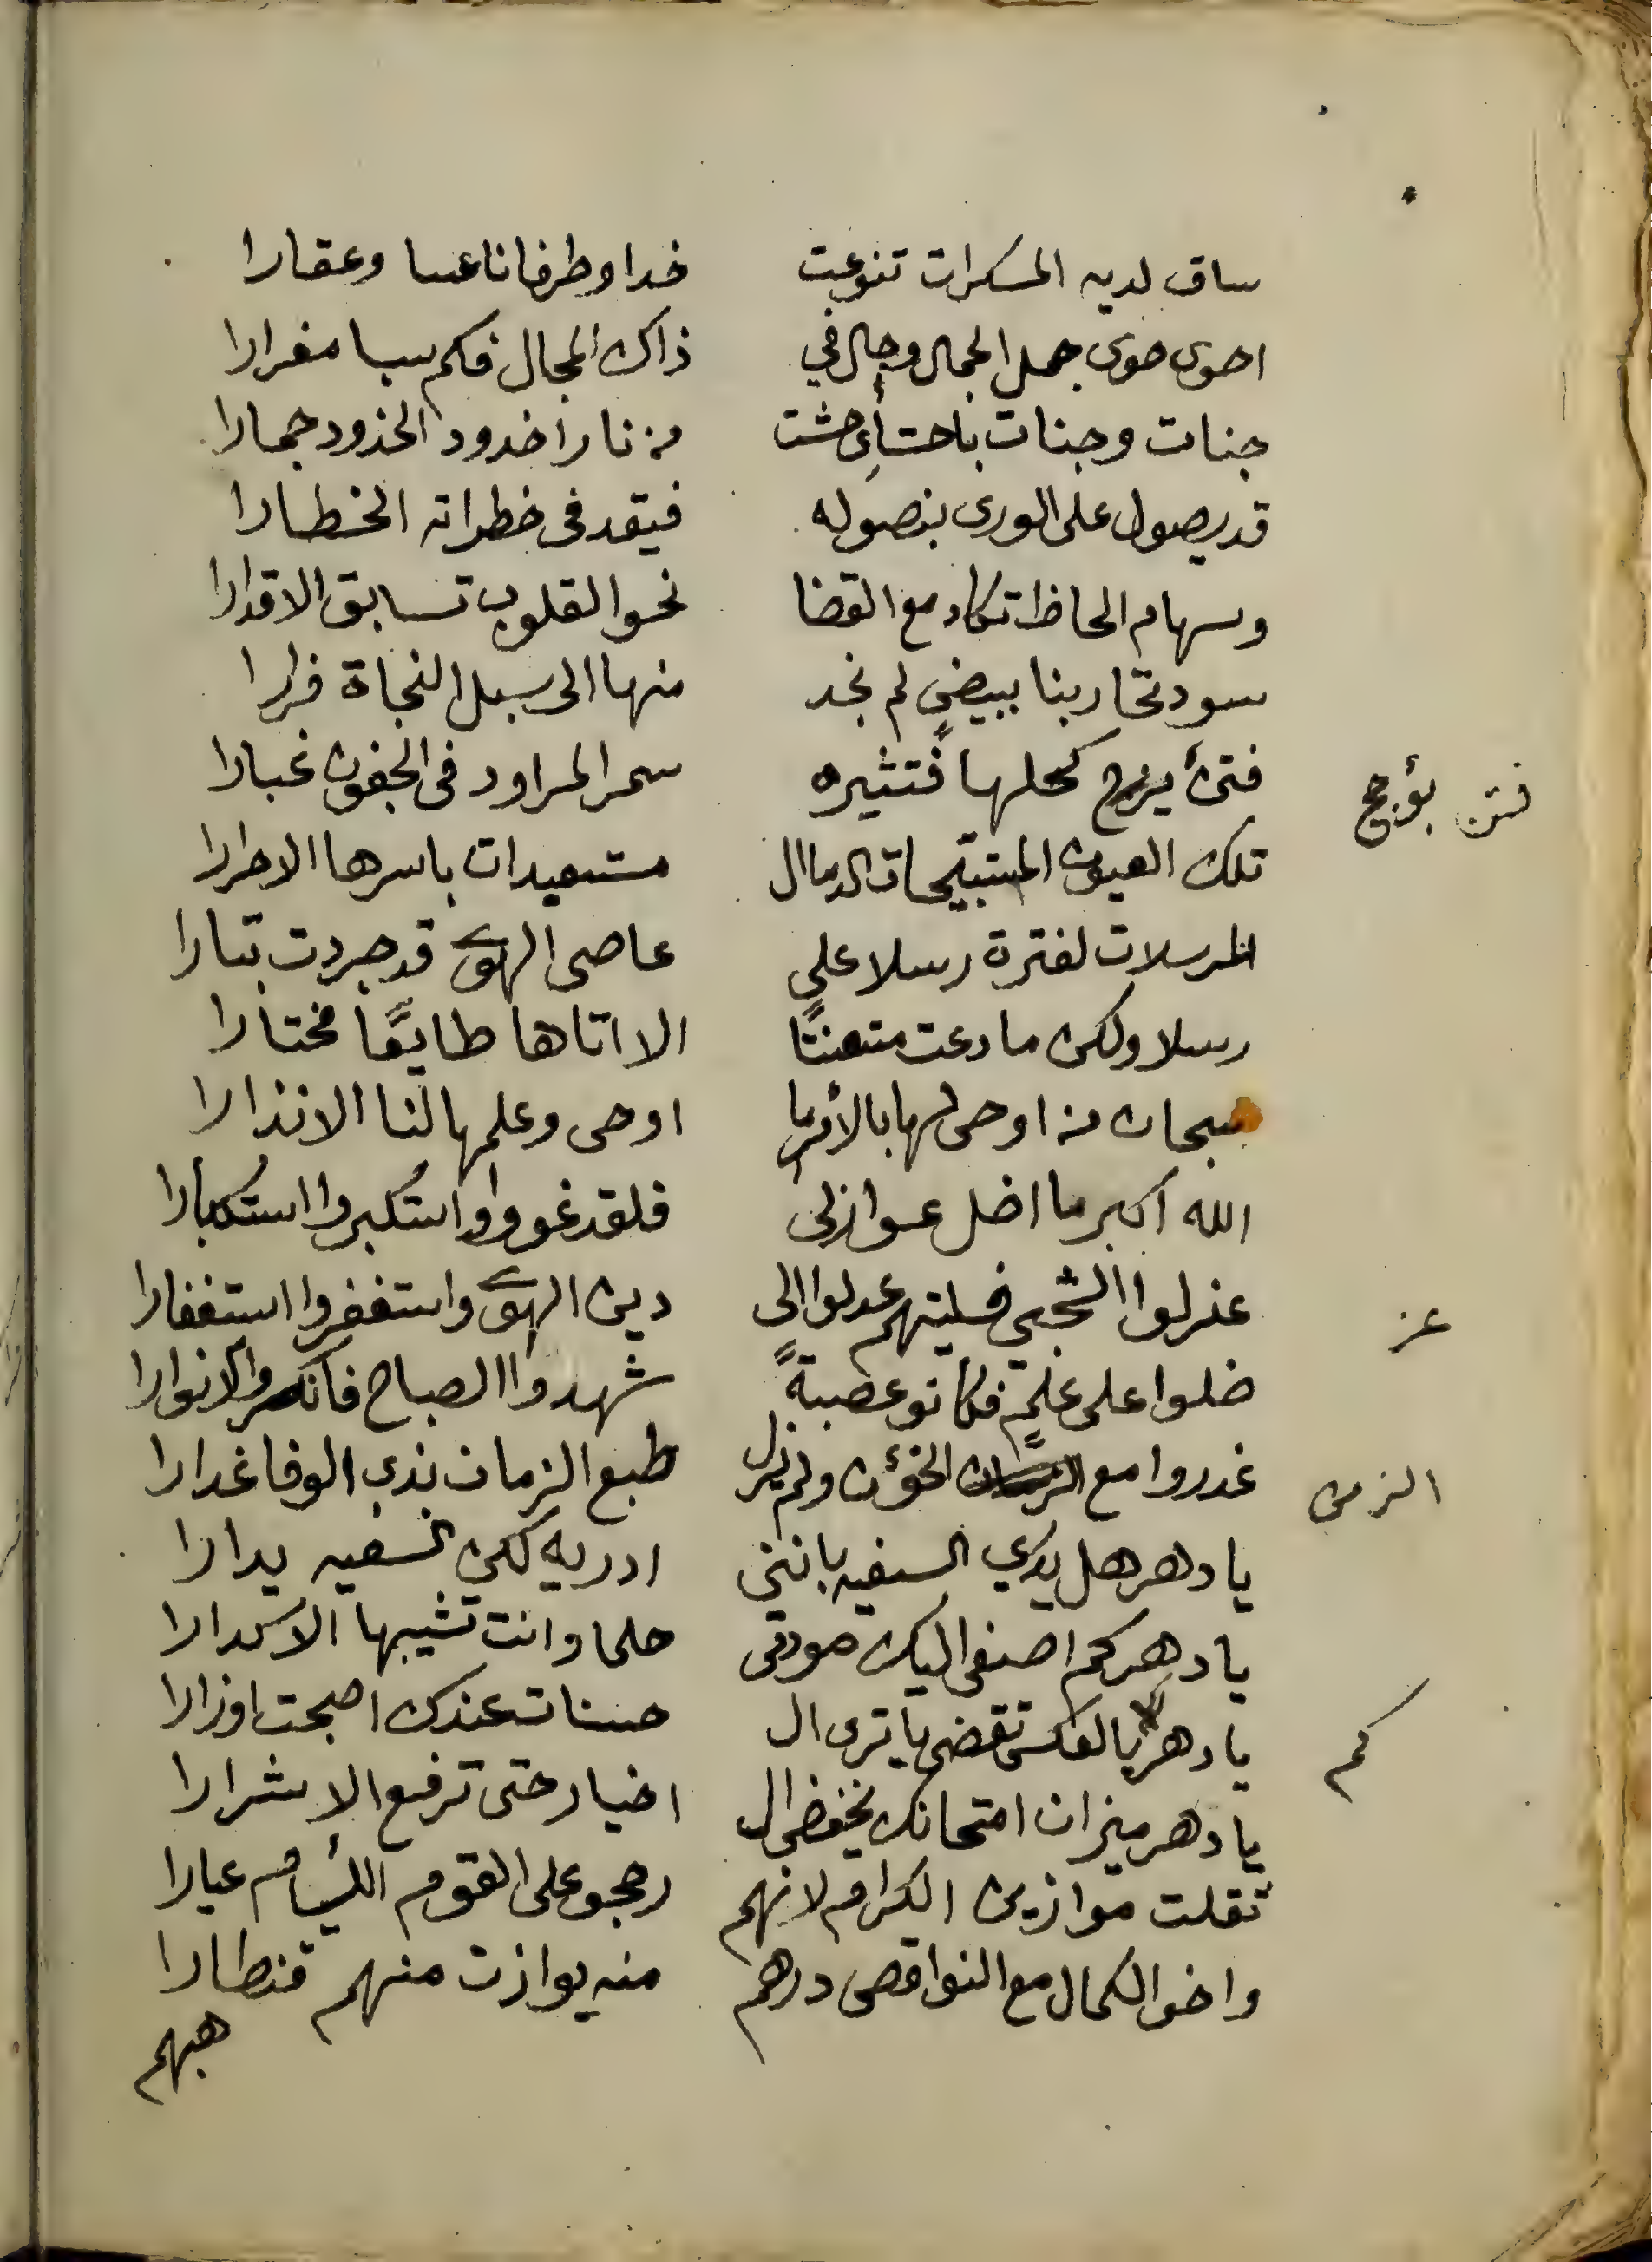 ساق لديه المسكرات تنوعت خدا وطرفا ناعسا وعقارا
احوى حوى جمل الجمال وجال في ذاك المجال فكم سبا مغرارا
جنات وجنات باحشائى حشت من نار اخدود الخدود جمارا
قد يصول على الورى بنصوله فيقد فى خطراته الخطارا
وسهام الحاظ تكاد مع القضا نحو القلوب تسابق الاقدارا
سود تحاربنا ببيض لم نجد منها الى سبل النجاة فرارا
فتئ كحلها فتثيره سمر المراود فى الجفون غبارا
فتن يؤجج
تلك العيون المستبيحات الدما ال مستعبدات باسرها الاحرارا
المرسلات لفترة رسلا على عاصى الهوى قد جردت بتارا
رسلا ولكن ما دعت متعنتًا الا اتاها طايعًا مختارا
سبحان من اوحى لها بالأمر ما اوحى وعلمها لنا الانذارا
الله اكبر ما اضل عواذلى فلقد غووا واستكبروا استكبارا
عذلوا الشجي فليتهم عدلوا الى دين الهوى واستغفروا استغفارا
عن
ضلوا على علمٍ فكانو عصبةً شهدوا الصباح فانكروا الانوارا
غدروا مع الخؤن ولم يزل طبع الزمان بذي الوفا غدارا
الزمن
يا دهر هل يدري السفيه بانني ادريه لكن السفيه يدارا
يا دهر كم اصفى اليك مودتى حلما وانت تشيبها الاكدارا
يا دهر بالعكس تقضى يا ترى ال حسنات عندك اصبحت اوزارا
كم
يا دهر ميزان امتحانك يخفض ال اخيار حتى ترفع الاشرارا
ثقلت موازين الكرام لانهم رجحو على القوم اللئام عيارا
واخو الكمال مع النواقص درهم منه يوازن منهم قنطارا
هبهم